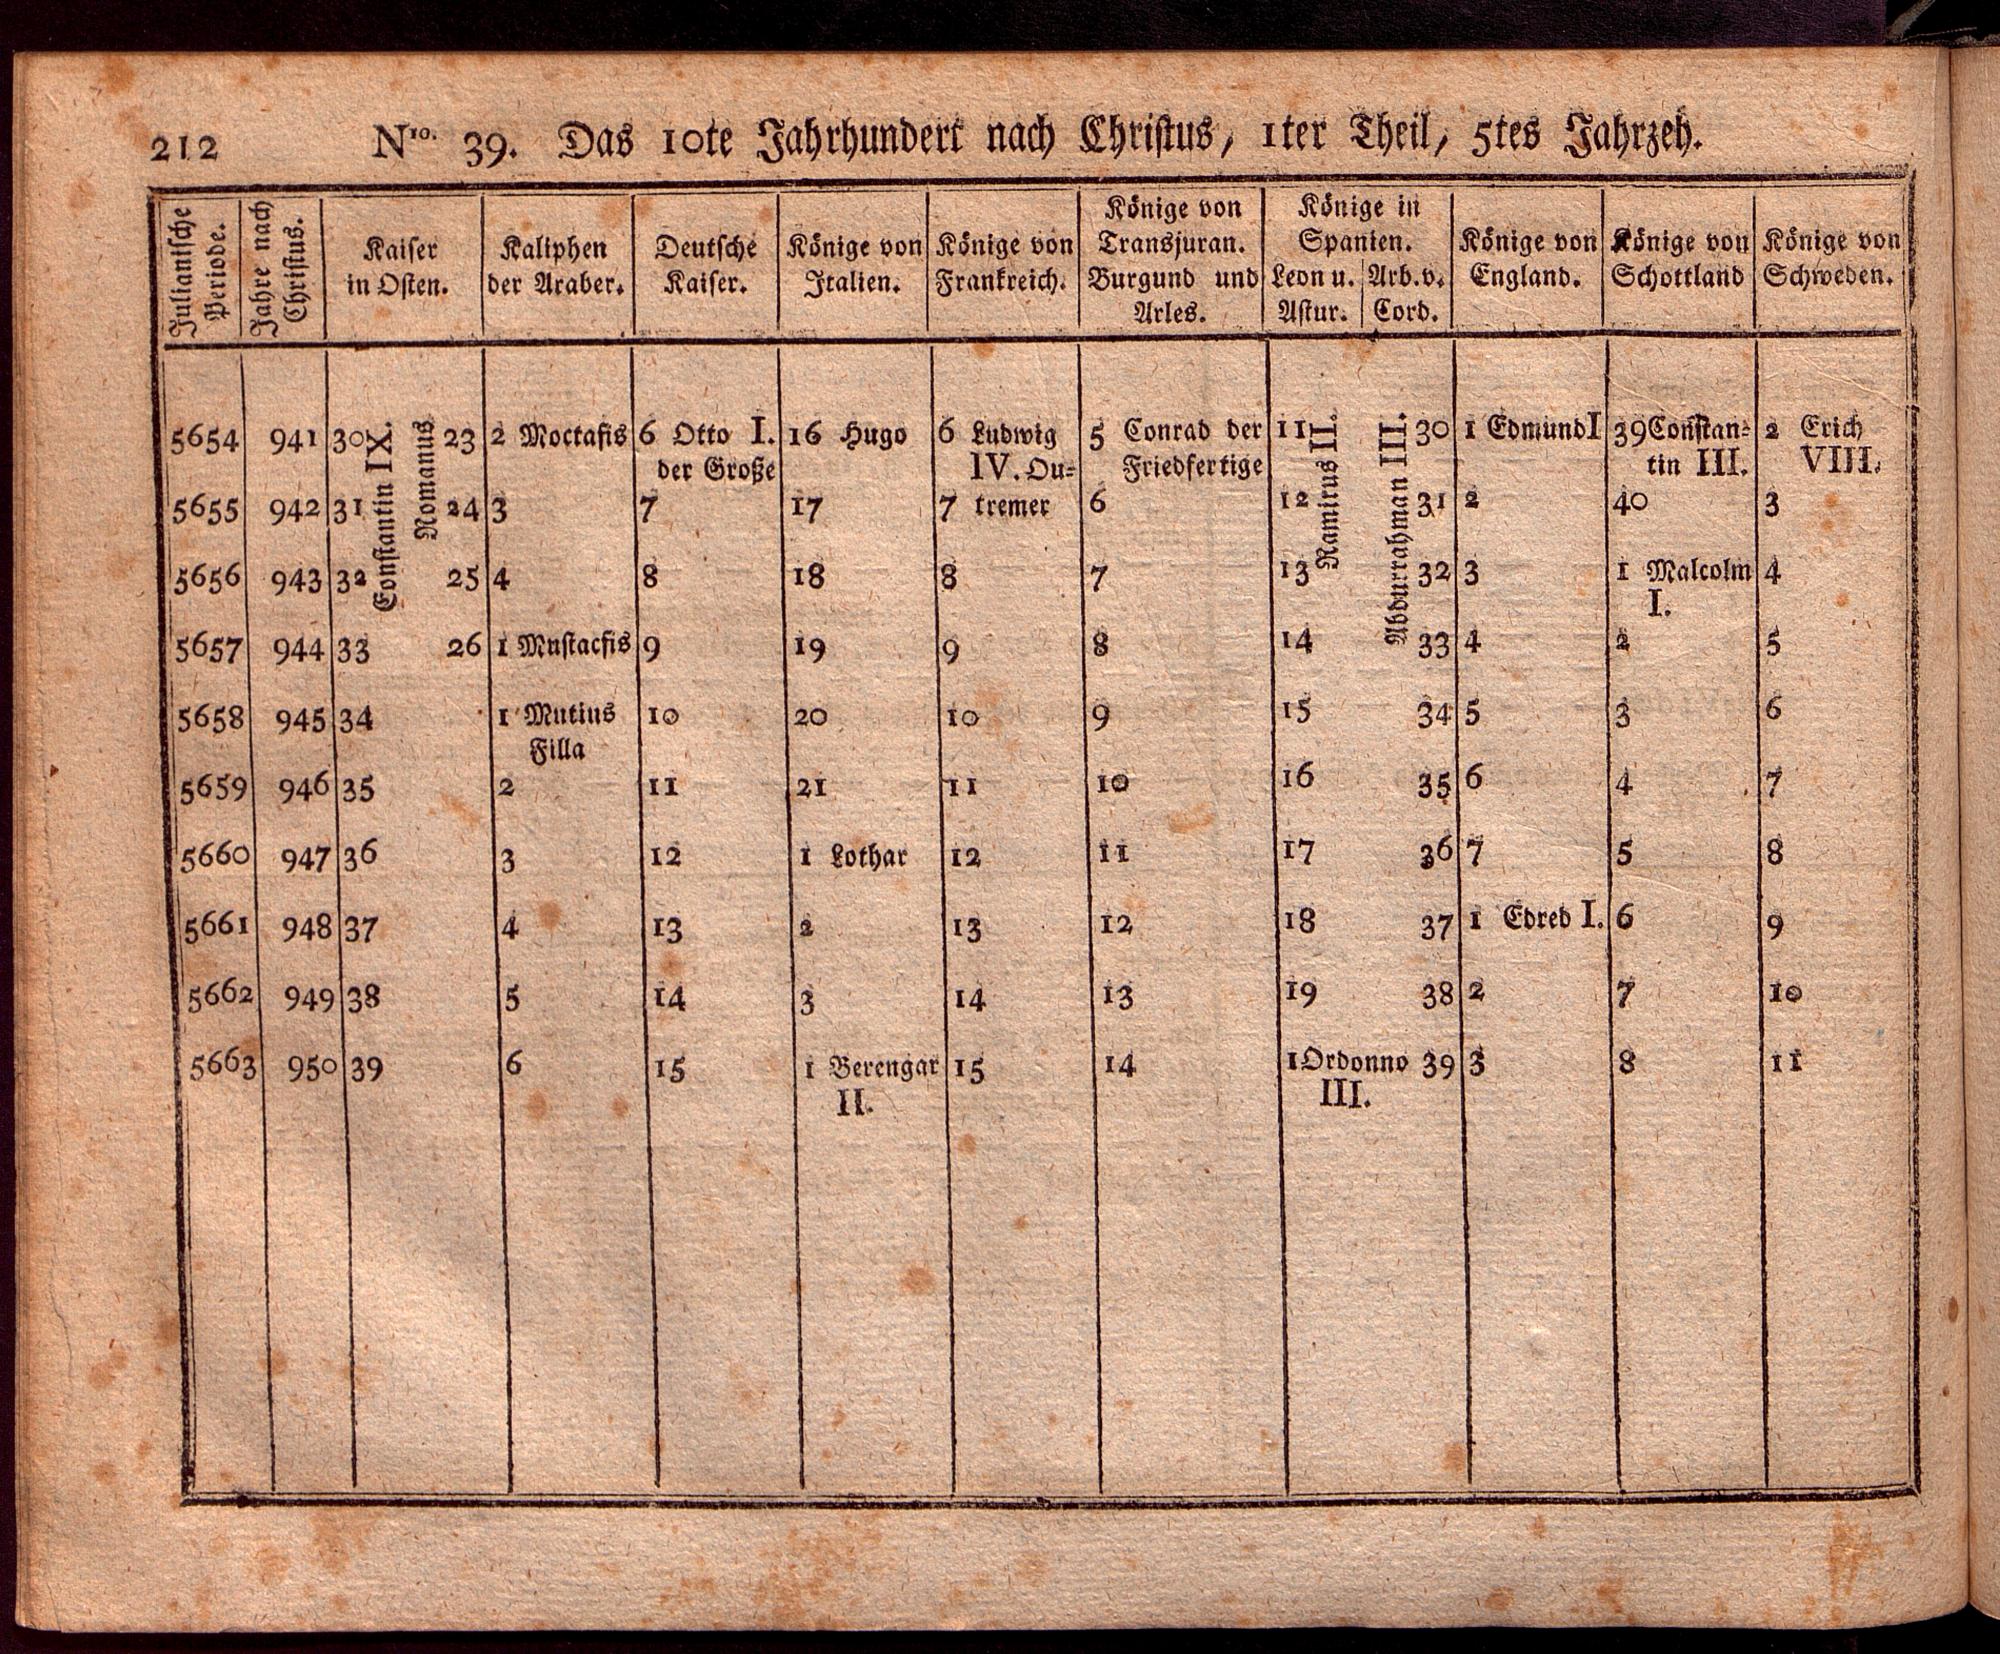 212
Nro. 39. Das 10te Jahrhundert nach Christus, 1ter Theil, 5tes Jahrzeh.
Julianische Periode.
Jahre nach Christus.
Kaiser
in Osten.
Kaliphen
der Araber.
Deutsche
Kaiser.
Könige von
Italien.
Könige von
Frankreich.
Könige von
Transjuran.
Burgund und
Arles.
Könige in
Spanien.
Leon u.
Astur.
Arb. v.
Cord.
Könige von
England.
Könige von
Schottland
Könige von
Schweden.
Constantin IX.
Romanus
Ramirus II.
Abdurrahman III.
5654 941 30 23 2 Moctafis 6 Otto I. 16 Hugo 6 Ludwig 5 Conrad der 11 30 1 Edmund I 39 Constan- 2 Erich
der Große IV. Ou- Friedfertige tin III. VIII.
5655 942 31 24 3 7 17 7 tremer 6 12 31 2 40 3
5656 943 32 25 4 8 18 8 7 13 32 3 1 Malcolm 4
I.
5657 944 33 26 1 Mustacfis 9 19 9 8 14 33 4 2 5
5658 945 34 1 Mutius 10 20 10 9 15 34 5 3 6
Filla
5659 946 35 2 11 21 11 10 16 35 6 4 7
5660 947 36 3 12 1 Lothar 12 11 17 36 7 5 8
5661 948 37 4 13 2 13 12 18 37 1 Edred I. 6 9
5662 949 38 5 14 3 14 13 19 38 2 7 10
5663 950 39 6 15 1 Berengar 15 14 1 Ordonno 39 3 8 11
II. III.